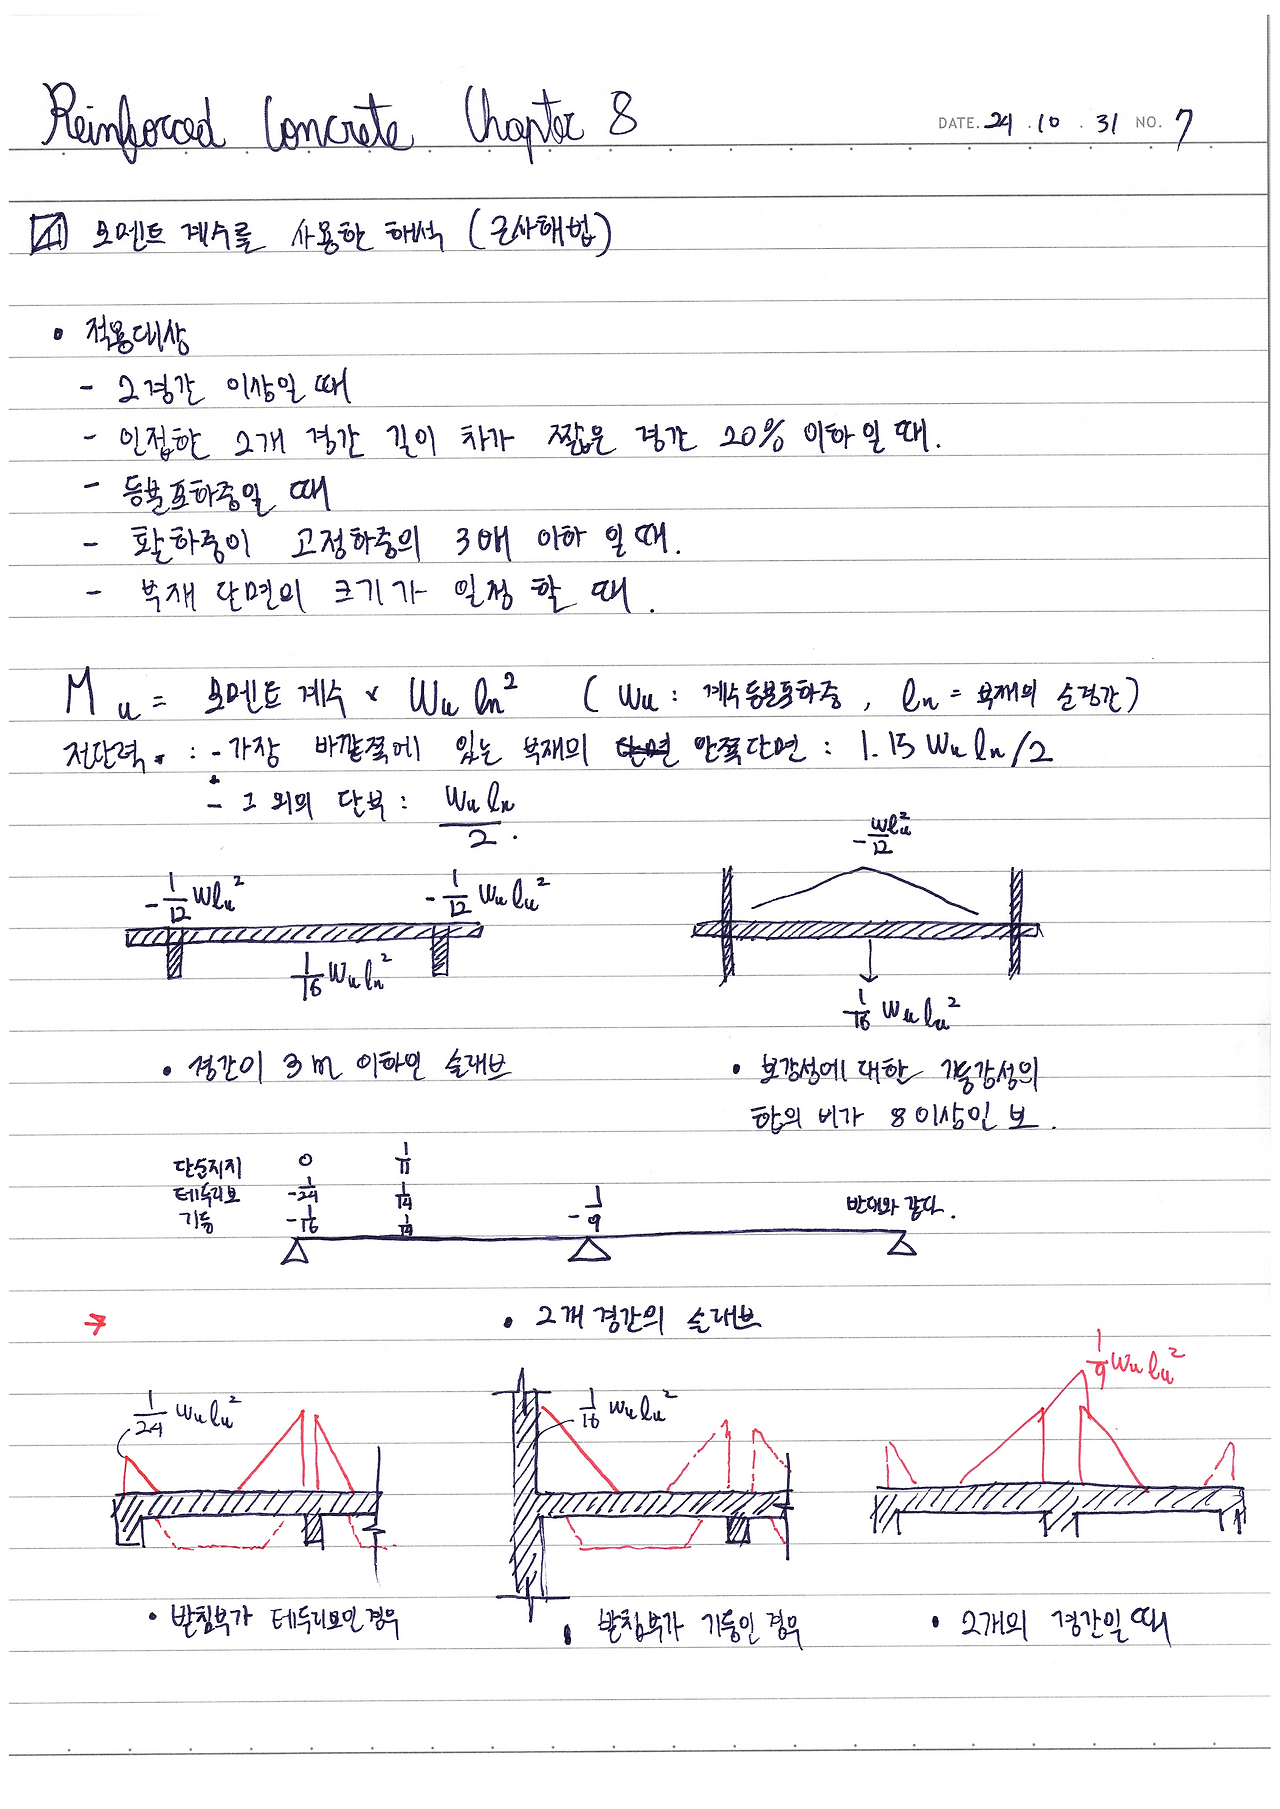 Reinforced Concrete Chapter 8
DATE. 24 . 10 . 31 NO. 7
모멘트 계수를 사용한 해석 (근사해법)
• 적용대상
- 2경간 이상일 때
- 인접한 2개 경간 길이 차가 짧은 경간 20% 이하일 때.
- 등분포하중일 때
- 활하중이 고정하중의 3배 이하 일 때.
- 부재 단면의 크기가 일정 할 때.
Mu = 모멘트 계수 × Wu ln² ( Wu : 계수등분포하중, ln = 부재의 순경간)
전단력 : - 가장 바깥쪽에 있는 부재의 안쪽단면 : 1.15 Wu ln/2
- 그 외의 단부 : Wu ln / 2 .
-1/12 Wlu² -1/12 Wu lu² -Wlu²/12
1/16 Wu ln² 1/16 Wu lu²
• 경간이 3m 이하인 슬래브
• 보강성에 대한 기둥강성의
합의 비가 8 이상인 보.
단순지지 0 1/11
테두리보 -1/24 1/14
기둥 -1/16 1/14 -1/9 반대와 같다.
• 2개 경간의 슬래브
1/24 Wu lu² 1/16 Wu lu² 1/9 Wu lu²
• 받침부가 테두리보인 경우
• 받침부가 기둥인 경우
• 2개의 경간일 때